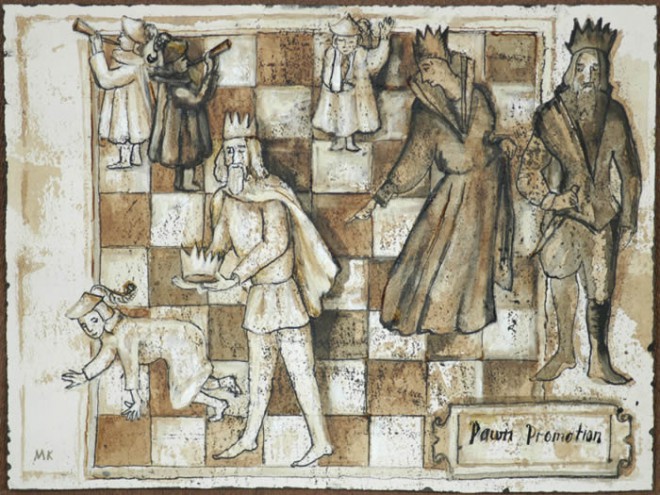 Pawn Promotion
MK